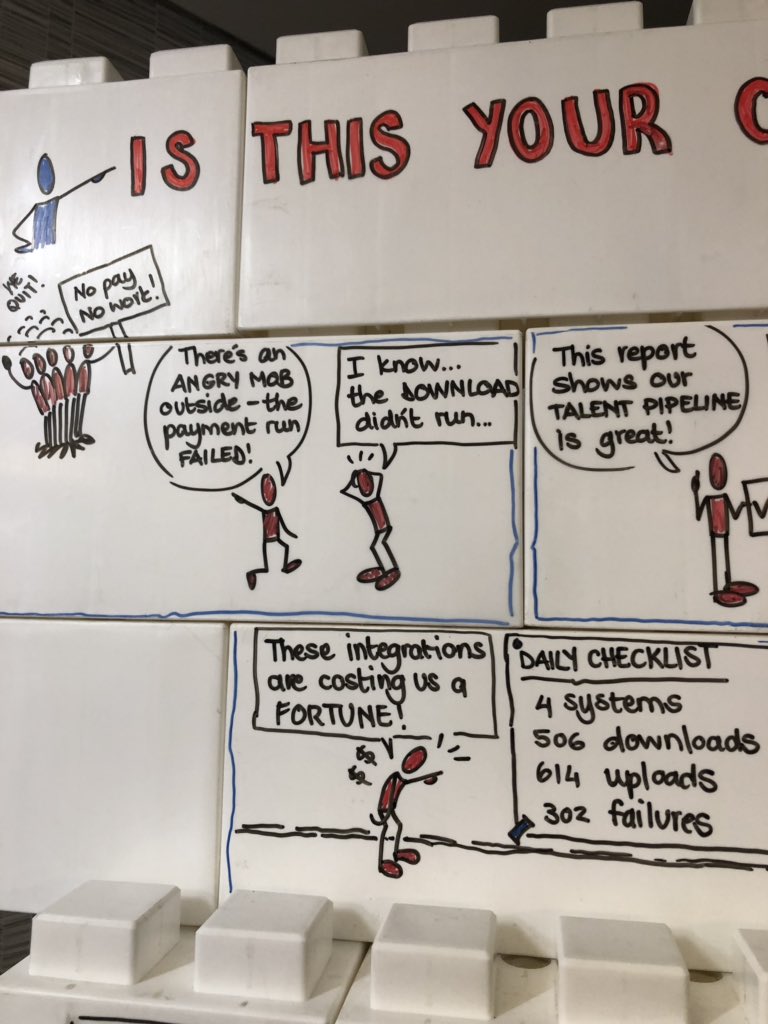 IS THIS YOUR
WE
QUIT!
No pay
No work!
There's an
ANGRY MOB
outside - the
payment run
FAILED!
I know...
the DOWNLOAD
didn't run...
This report
shows our
TALENT PIPELINE
is great!
These integrations
are costing us a
FORTUNE!
DAILY CHECKLIST
4 systems
506 downloads
614 uploads
302 failures